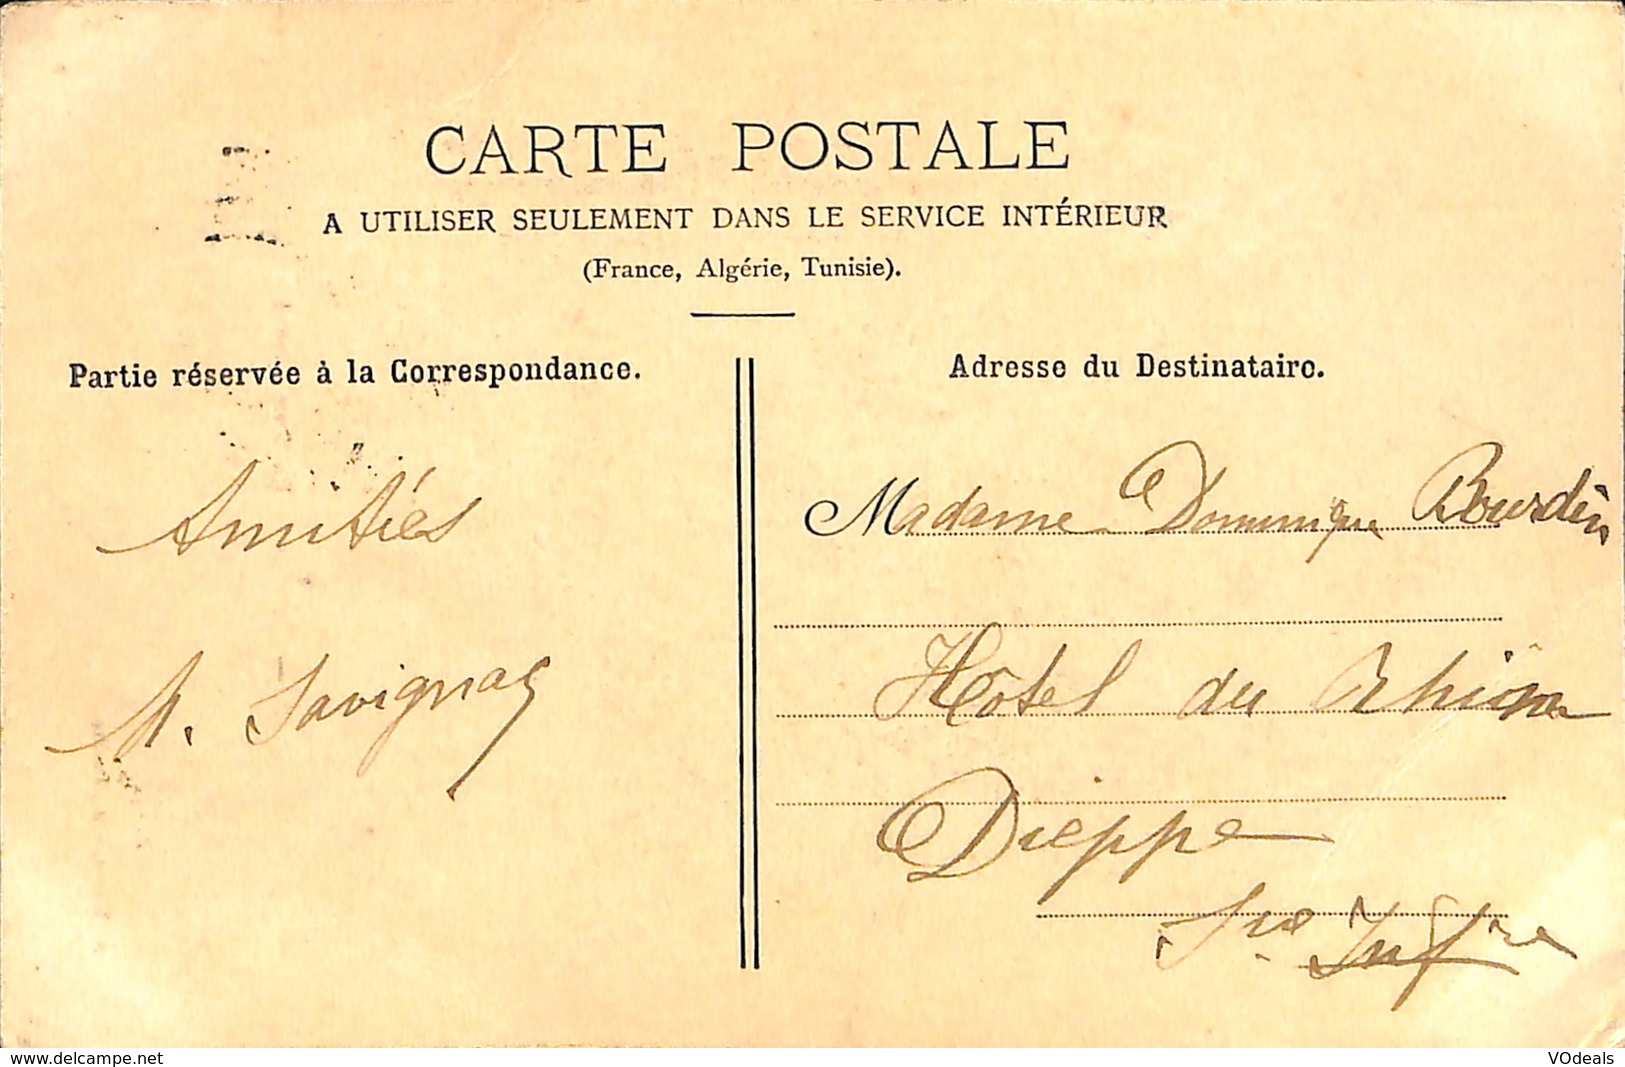 CARTE POSTALE
A UTILISER SEULEMENT DANS LE SERVICE INTÉRIEUR
(France, Algérie, Tunisie).
Partie réservée à la Correspondance.
Amitiés
M. Savignac
Adresse du Destinataire.
Madame Dominique Bourdin
Hôtel du Rhin
Dieppe
Sne Infre
www.delcampe.net
VOdeals